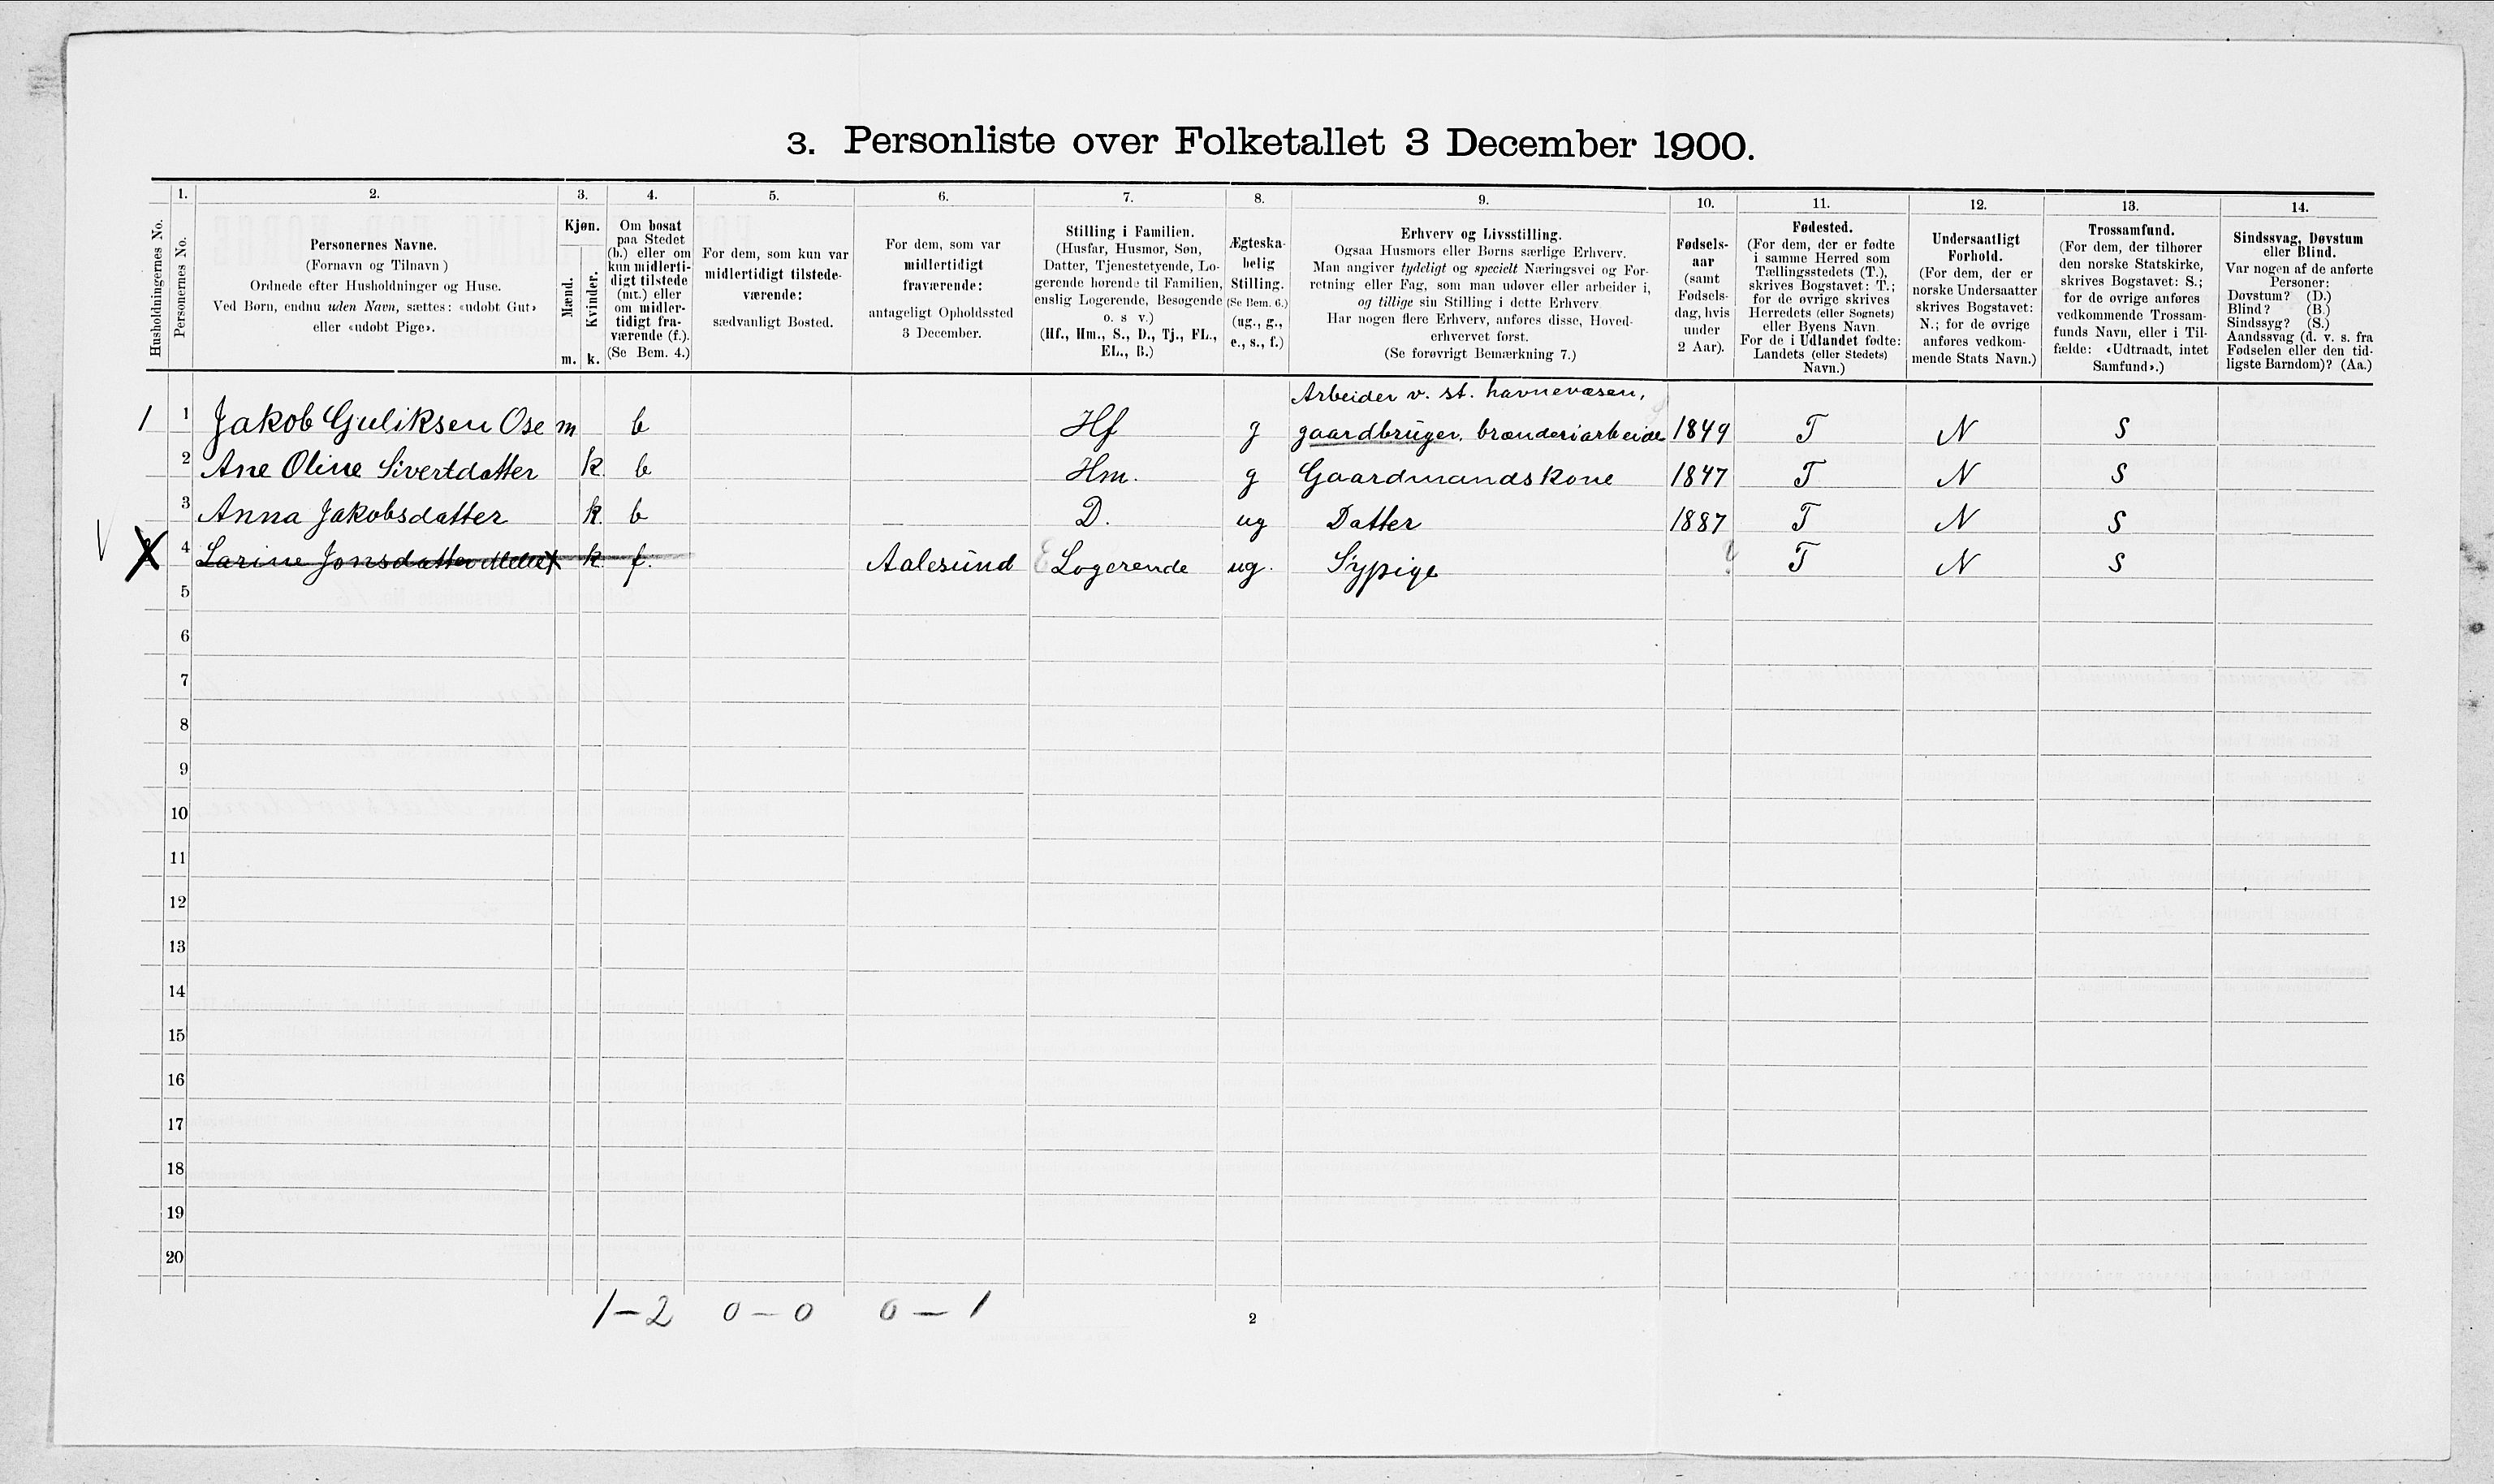 3. Personliste over Folketallet 3 December 1900.
1. 2. 3. 4. 5. 6. 7. 8. 9. 10. 11. 12. 13. 14.
Husholdningernes No.
Personernes No.
Personernes Navne.
(Fornavn og Tilnavn)
Ordnede efter Husholdninger og Huse.
Ved Børn, endnu uden Navn, sættes: «udøbt Gut»
eller «udøbt Pige».
Kjøn.
Mænd.
Kvinder.
m. k.
Om bosat
paa Stedet
(b.) eller om
kun midlerti-
digt tilstede
(mt.) eller
om midler-
tidigt fra-
værende (f.).
(Se Bem. 4.)
For dem, som kun var
midlertidigt tilstede-
værende:
sædvanligt Bosted.
For dem, som var
midlertidigt
fraværende:
antageligt Opholdssted
3 December.
Stilling i Familien.
(Husfar, Husmor, Søn,
Datter, Tjenestetyende, Lo-
gerende hørende til Familien,
enslig Logerende, Besøgende
o. s v.)
(Hf., Hm., S., D., Tj., FL.,
EL., B.)
Ægteska-
belig
Stilling.
(Se Bem. 6.)
(ug., g.,
e., s., f.)
Erhverv og Livsstilling.
Ogsaa Husmors eller Børns særlige Erhverv.
Man angiver tydeligt og specielt Næringsvei og For-
retning eller Fag, som man udøver eller arbeider i,
og tillige sin Stilling i dette Erhverv.
Har nogen flere Erhverv, anføres disse, Hoved-
erhvervet først.
(Se forøvrigt Bemærkning 7.)
Fødsels-
aar
(samt
Fødsels-
dag, hvis
under
2 Aar).
Fødested.
(For dem, der er fødte
i samme Herred som
Tællingsstedets (T.),
skrives Bogstavet: T.;
for de øvrige skrives
Herredets (eller Sognets)
eller Byens Navn.
For de i Udlandet fødte:
Landets (eller Stedets)
Navn.)
Undersaatligt
Forhold.
(For dem, der er
norske Undersaatter
skrives Bogstavet:
N.; for de øvrige
anføres vedkom-
mende Stats Navn.)
Trossamfund.
(For dem, der tilhører
den norske Statskirke,
skrives Bogstavet: S.;
for de øvrige anføres
vedkommende Trossam-
funds Navn, eller i Til-
fælde: «Udtraadt, intet
Samfund».)
Sindssvag, Døvstum
eller Blind.
Var nogen af de anførte
Personer:
Døvstum? (D.)
Blind? (B.)
Sindssyg? (S.)
Aandssvag (d. v. s. fra
Fødselen eller den tid-
ligste Barndom)? (Aa.)
Arbeider v. st. havnevæsen,
1 1 Jakob Guliksen Ose m b Hf g gaardbruger. brænderiarbeide 1849 T N S
2 Ane Oline Sivertdatter k. b Hm. g Gaardmandskone 1847 T N S
3 Anna Jakobsdatter k. b D. ug Datter 1887 T N S
4 Larine Jonsdatter k. f. Aalesund Logerende ug. Sypige ? T N S
5
6
7
8
9
10
11
12
13
14
15
16
17
18
19
20
1 – 2 0 – 0 0 – 1
2